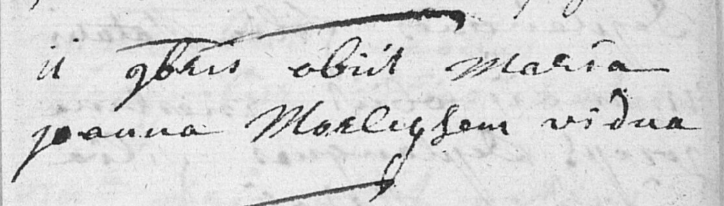 ii 9bris obiit Maria
joanna Morleghem vidua